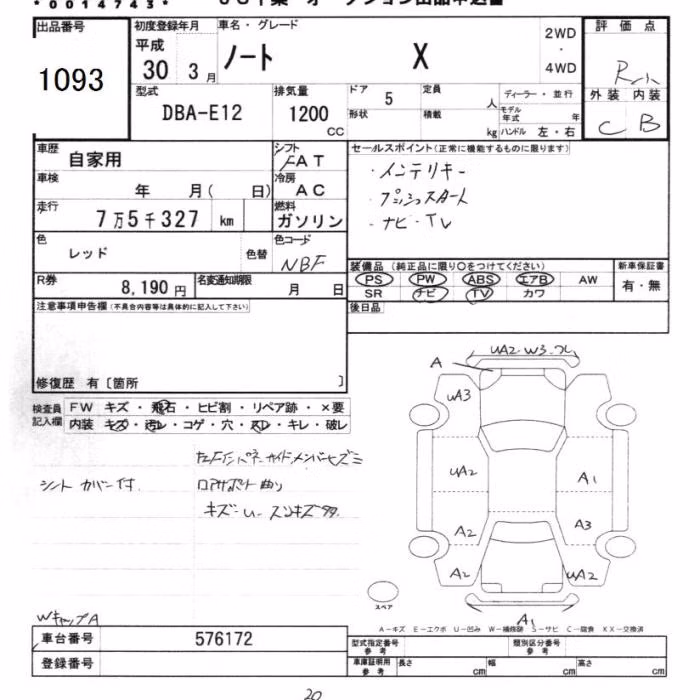 *0014743*
出品番号
1093
初度登録年月
平成
30 3月
車名・グレード
ノート X
2WD
・
4WD
評価点
外装 内装
C B
型式
DBA-E12
排気量
1200
CC
ドア 5
定員 人
形状
積載 kg
ディーラー・並行
モデル年式 年
ハンドル 左・右
車歴 自家用
シフト FAT
車検 年 月( 日)
冷房 AC
走行 7万5千327 km
燃料 ガソリン
色 レッド 色替
色コード NBF
R券 8,190円
名変通知期限 月 日
セールスポイント(正常に機能するものに限ります)
・インテリキー
・プッシュスタート
・ナビ・TV
装備品 (純正品に限り○をつけてください)
新車保証書
PS PW ABS エアB AW
SR ナビ TV カワ
有・無
後日品
注意事項申告欄(不具合内容等は具体的に記入して下さい)
修復歴 有〔箇所 〕
検査員記入欄
FW キズ・飛石・ヒビ割・リペア跡・×要
内装 キズ・汚レ・コゲ・穴・スレ・キレ・破レ
シートカバー付
キズ・U・スリキズ多
WキャップA
UA2 W3
A
UA3
UA2
A1
A2
A3
A2
UA2
A1
スペア
A−キズ E−エクボ U−凹み W−補修跡 S−サビ C−腐食 XX−交換済
車台番号 576172
登録番号
型式指定番号 参考
類別区分番号 参考
車庫証明用 参考
長さ cm
幅 cm
高さ cm
20